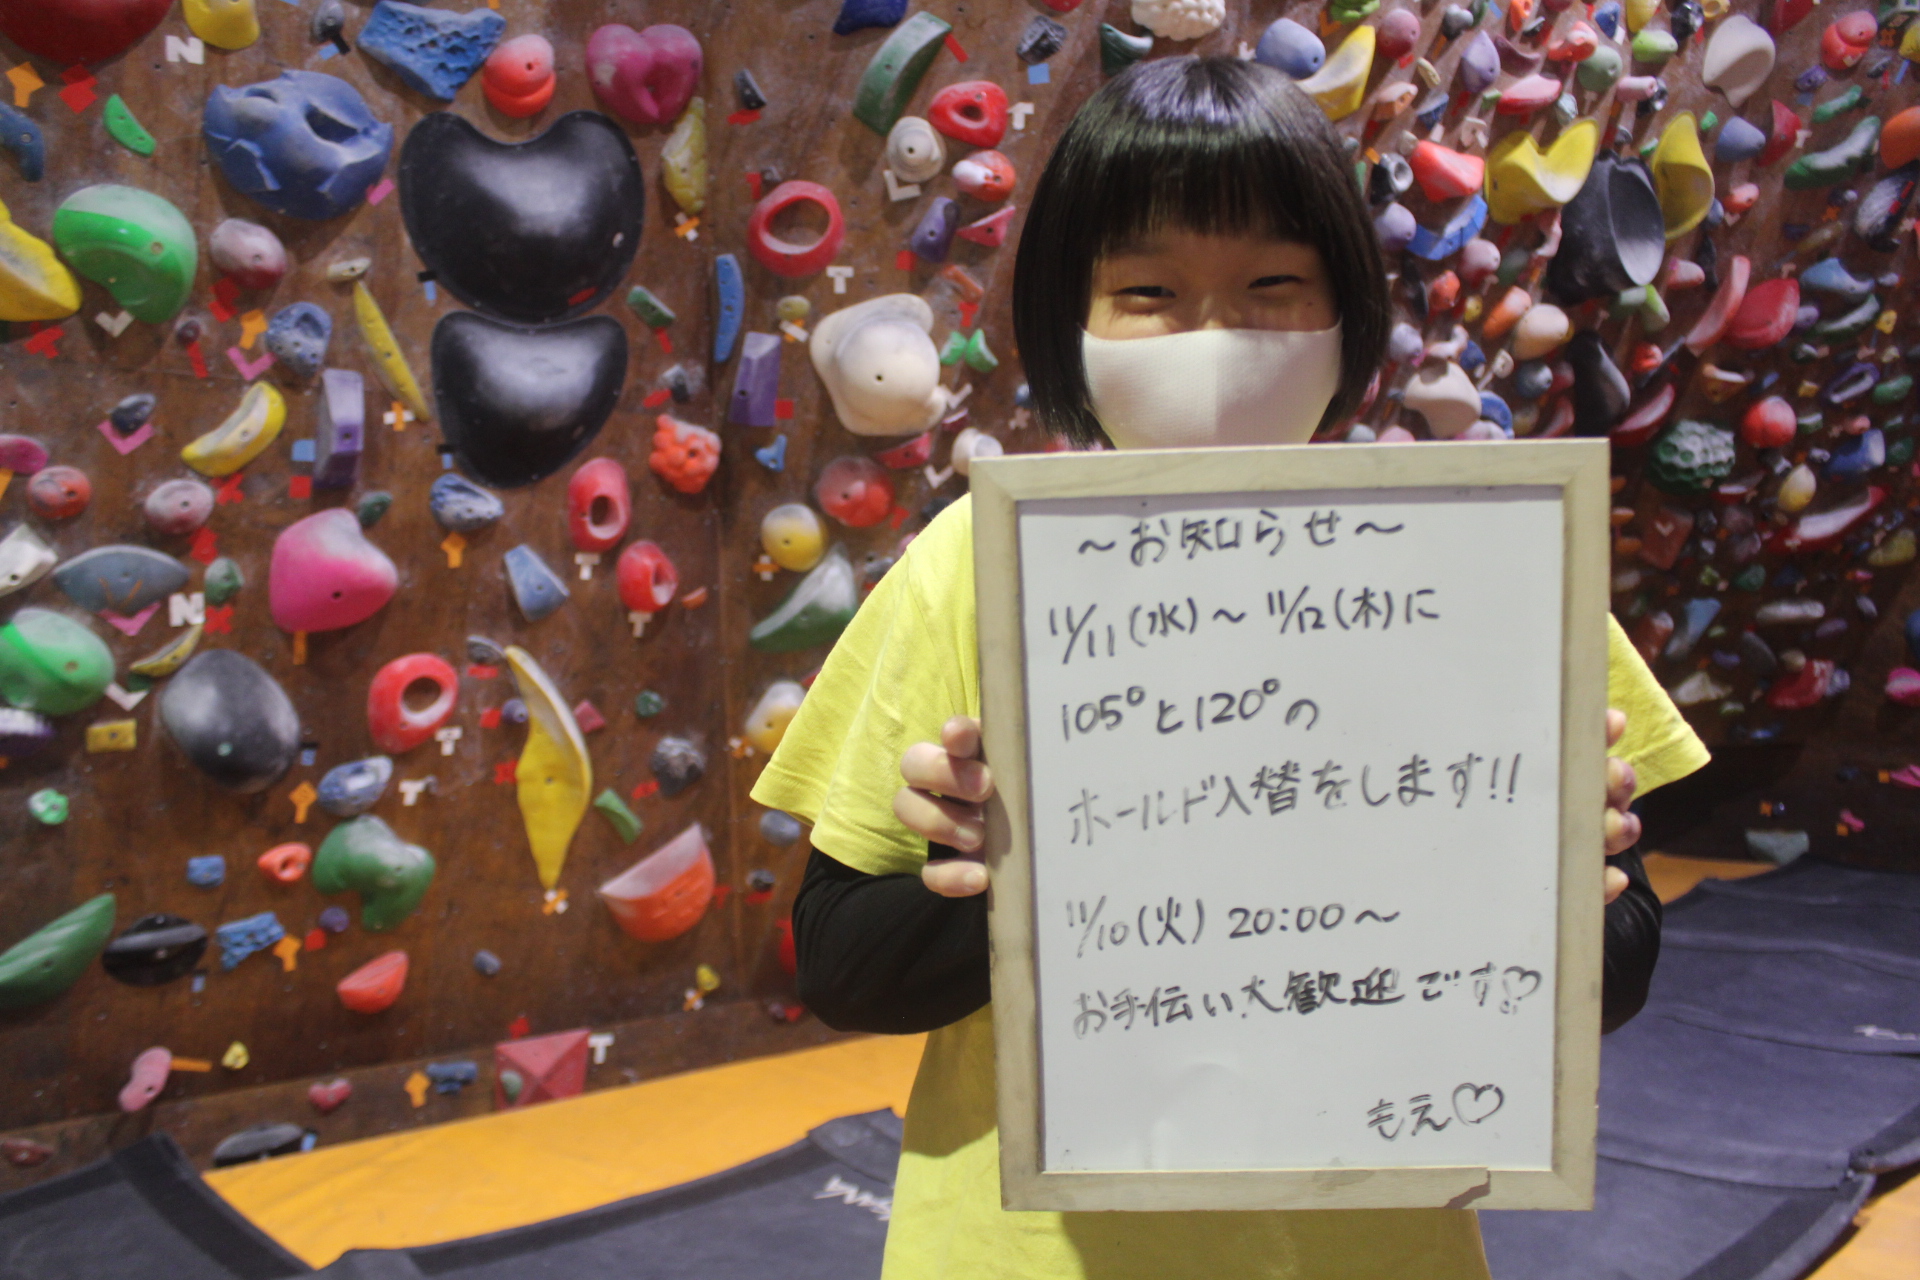 ～お知らせ～
11/11(水)～11/12(木)に
105°と120°の
ホールド入替をします!!
11/10(火) 20:00～
お手伝い大歓迎です♡
もえ♡